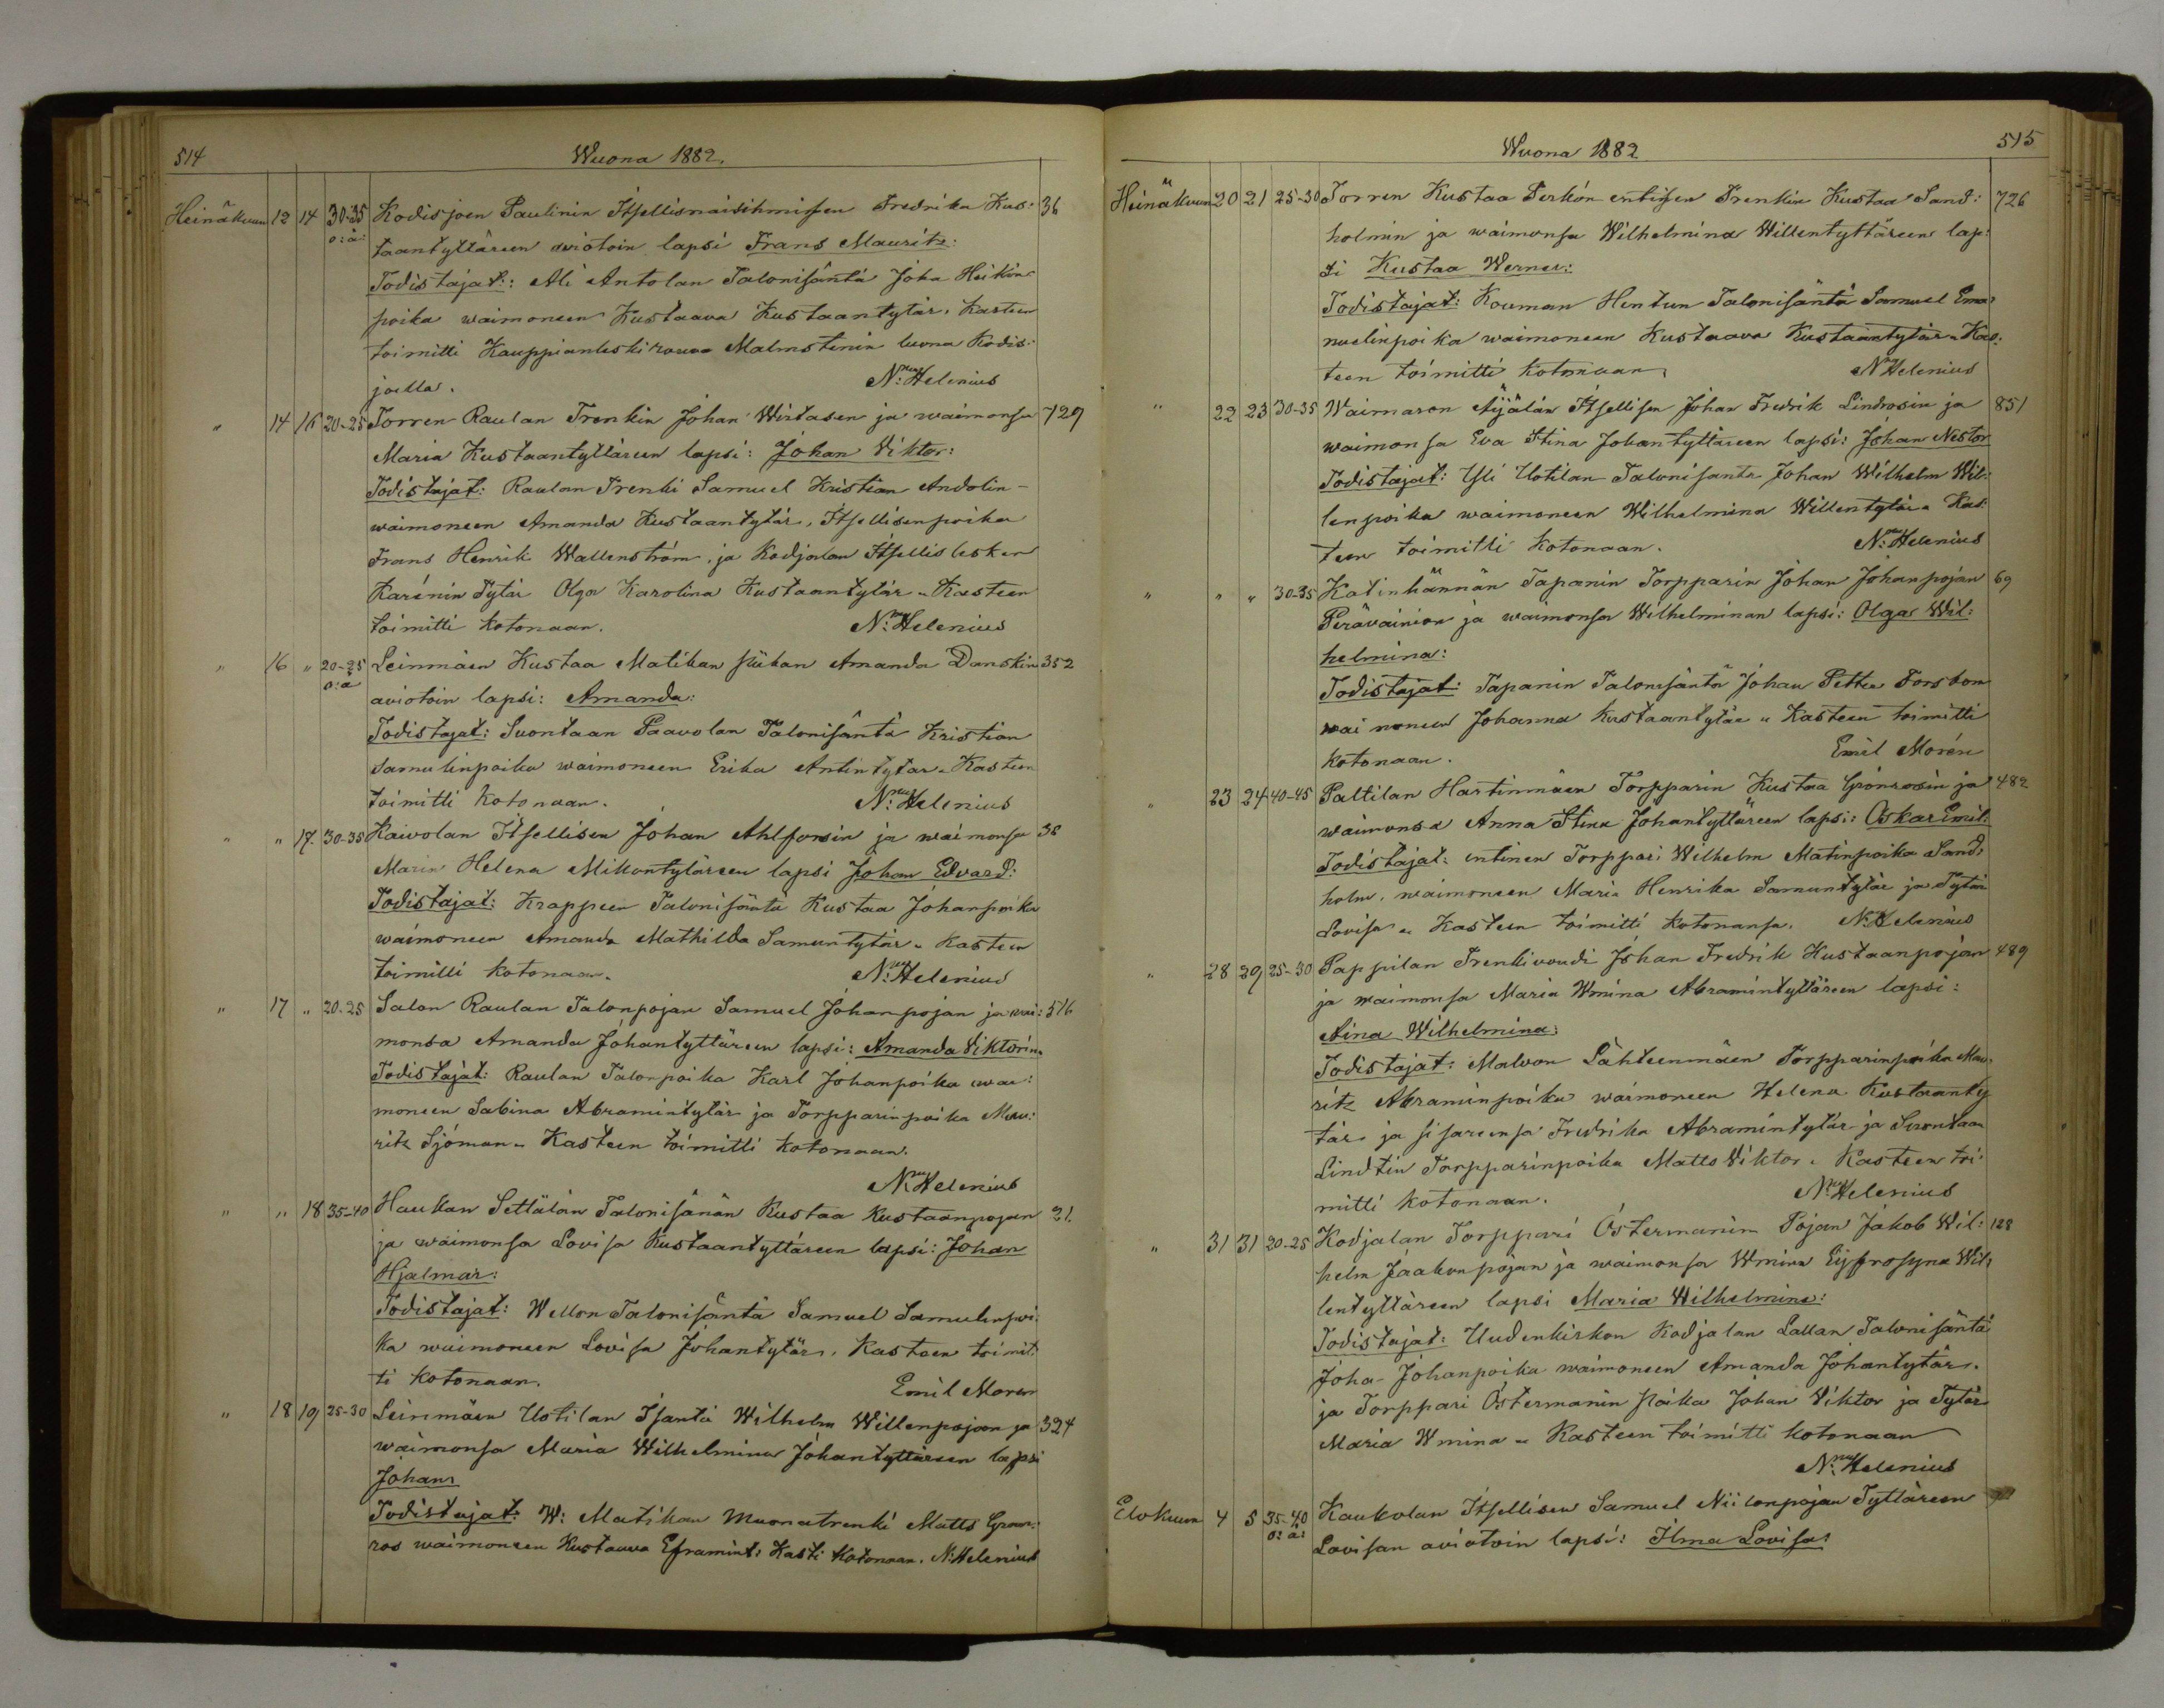 514
Wuona 1882.
Heinäkuun 12 14 30-35 Kodisjoen Paulinin Itsellisnaisihmisen Fredrika Kus: 36
o: ä: taantyttären aviotoin lapsi Frans Mauritz:
Todistajat: Ali Antolan Talonisäntä Joha Heikin
poika waimoneen Kustaava Kustaantytär. Kasteen
toimitti Kauppianleski rouva Malmstenin luona Kodis:
joella. N: Helenius
" 14 16 20-25 Torren Raulan Trenkin Johan Wirtasen ja waimonsa 729
Maria Kustaantyttäreen lapsi: Johan Viktor:
Todistajat: Raulan Trenki Samuel Kristian Andolin-
waimoneen Amanda Kustaantytär, Itsellisenpoika
Frans Henrik Wallenström, ja Kodjalan Itsellislesken
Karénin Tytär Olga Karolina Kustaantytär. Kasteen
toimitti kotonaan. N: Helenius
" 16 " 20-25 Leinmäen Kustaa Matikan piikan Amanda Danskin 352
o: ä aviotoin lapsi: Amanda:
Todistajat: Suontaan Paavolan Talonisäntä Kristian
Samulinpoika waimoneen Erika Antintytär. Kasteen
toimitti kotonaan. N: Helenius
" " 17. 30-35 Kaivolan Itsellisen Johan Ahlforsin ja waimonsa 38
Maria Helena Mikontytäreen lapsi Johan Edvard:
Todistajat: Krappeen Talonisäntä Kustaa Johanpoika
waimoneen Amanda Mathilda Samuntytär. Kasteen
toimitti kotonaan. N: Helenius
" 17 " 20-25 Salon Raulan Talonpojan Samuel Johanpojan ja wai: 516
monsa Amanda Johantyttäreen lapsi: Amanda Viktorina
Todistajat: Raulan Talonpoika Karl Johanpoika wai:
moneen Sabina Abramintytär ja Torpparinpoika Mau:
ritz Sjöman. Kasteen toimitti kotonaan.
N: Helenius
" " 18 35-40 Haukan Settälän Talonisänän Kustaa Kustaanpojan 21.
ja waimonsa Lovisa Kustaantyttäreen lapsi: Johan
Hjalmar:
Todistajat: Wellon Talonisäntä Samuel Samulinpoi:
ka waimoneen Lovisa Johantytär. Kasteen toimit:
ti kotonaan. Emil Moren
" 18 19 25-30 Leinmäen Uotilan Isäntä Wilhelm Willenpojan ja 324
waimonsa Maria Wilhelmina Johantyttäreen lapsi
Johan
Todistajat: W: Matikan Muonatrenki Matts Grön:
ros waimoneen Kustaava Eframint: Kasti kotonaan. N: Helenius
515
Wuona 1882
Heinäkuun 20 21 25-30 Torren Kustaa Perkön entisen Trenkin Kustaa Sand: 726
holmin ja waimonsa Wilhelmina Willentyttäreen lap:
si Kustaa Werner:
Todistajat: Kouman Hentun Talonisäntä Samuel Ema:
nuelinpoika waimoneen Kustaava Kustaantytär. Kas:
teen toimitti kotonaan. N Helenius
" 22 23 30-35 Waimaron Äijälän Itsellisen Johan Fredrik Lindrosin ja 851
waimonsa Eva Stina Johantyttäreen lapsi: Johan Nestor
Todistajat: Yli Uotilan Talonisäntä Johan Wilhelm Wil:
lenpoika waimoneen Wilhelmina Willentytär. Kas:
teen toimitti kotonaan. N: Helenius
" " " 30-35 Katinhännän Tapanin Torpparin Johan Johanpojan 69
Perävainion ja waimonsa Wilhelminan lapsi: Olga Wil:
helmina:
Todistajat: Tapanin Talonisäntä Johan Petter Forsbom
waimoneen Johanna Kustaantytär. Kasteen toimitti
kotonaan. Emil Morén
" 23 24 40-45 Paltilan Hartinmäen Torpparin Kustaa Grönrosin ja 482
waimonsa Anna Stina Johantyttäreen lapsi: Oskar Emil.
Todistajat: entinen Torppari Wilhelm Matinpoika Sand:
holm, waimoneen Maria Henrika Samuntytär ja Tytär
Lovisa. Kasteen toimitti kotonansa. N: Helenius
" 28 29 25-30 Pappilan Trenkivoudi Johan Fredrik Kustaanpojan 489
ja waimonsa Maria Wmina Abramintyttäreen lapsi:
Aina Wilhelmina:
Todistajat: Malvon Lähteenmäen Torpparinpoika Mau:
ritz Abraminpoika waimoneen Helena Kustaanty
tär ja sisarensa Fredrika Abramintytär ja Suontaan
Lindtin Torpparinpoika Matts Viktor. Kasteen toi:
mitti kotonaan. N: Helenius
" 31 31 20-25 Kodjalan Torppari Östermanin Pojan Jakob Wil: 128
helm Jaakonpojan ja waimonsa Wmina Eyfrosyna Wil:
lentyttäreen lapsi Maria Wilhelmina:
Todistajat: Uudenkirkon Kodjalan Lallan Talonisäntä
Joha Johanpoika waimoneen Amanda Johantytär.
ja Torppari Östermanin Poika Johan Viktor ja Tytär
Maria Wmina. Kasteen toimitti kotonaan
N: Helenius
Elokuun 4 5 35-40 Kaukolan Itsellisen Samuel Niilonpojan Tyttäreen
o: ä: Lovisan aviotoin lapsi: Ilma Lovisa: